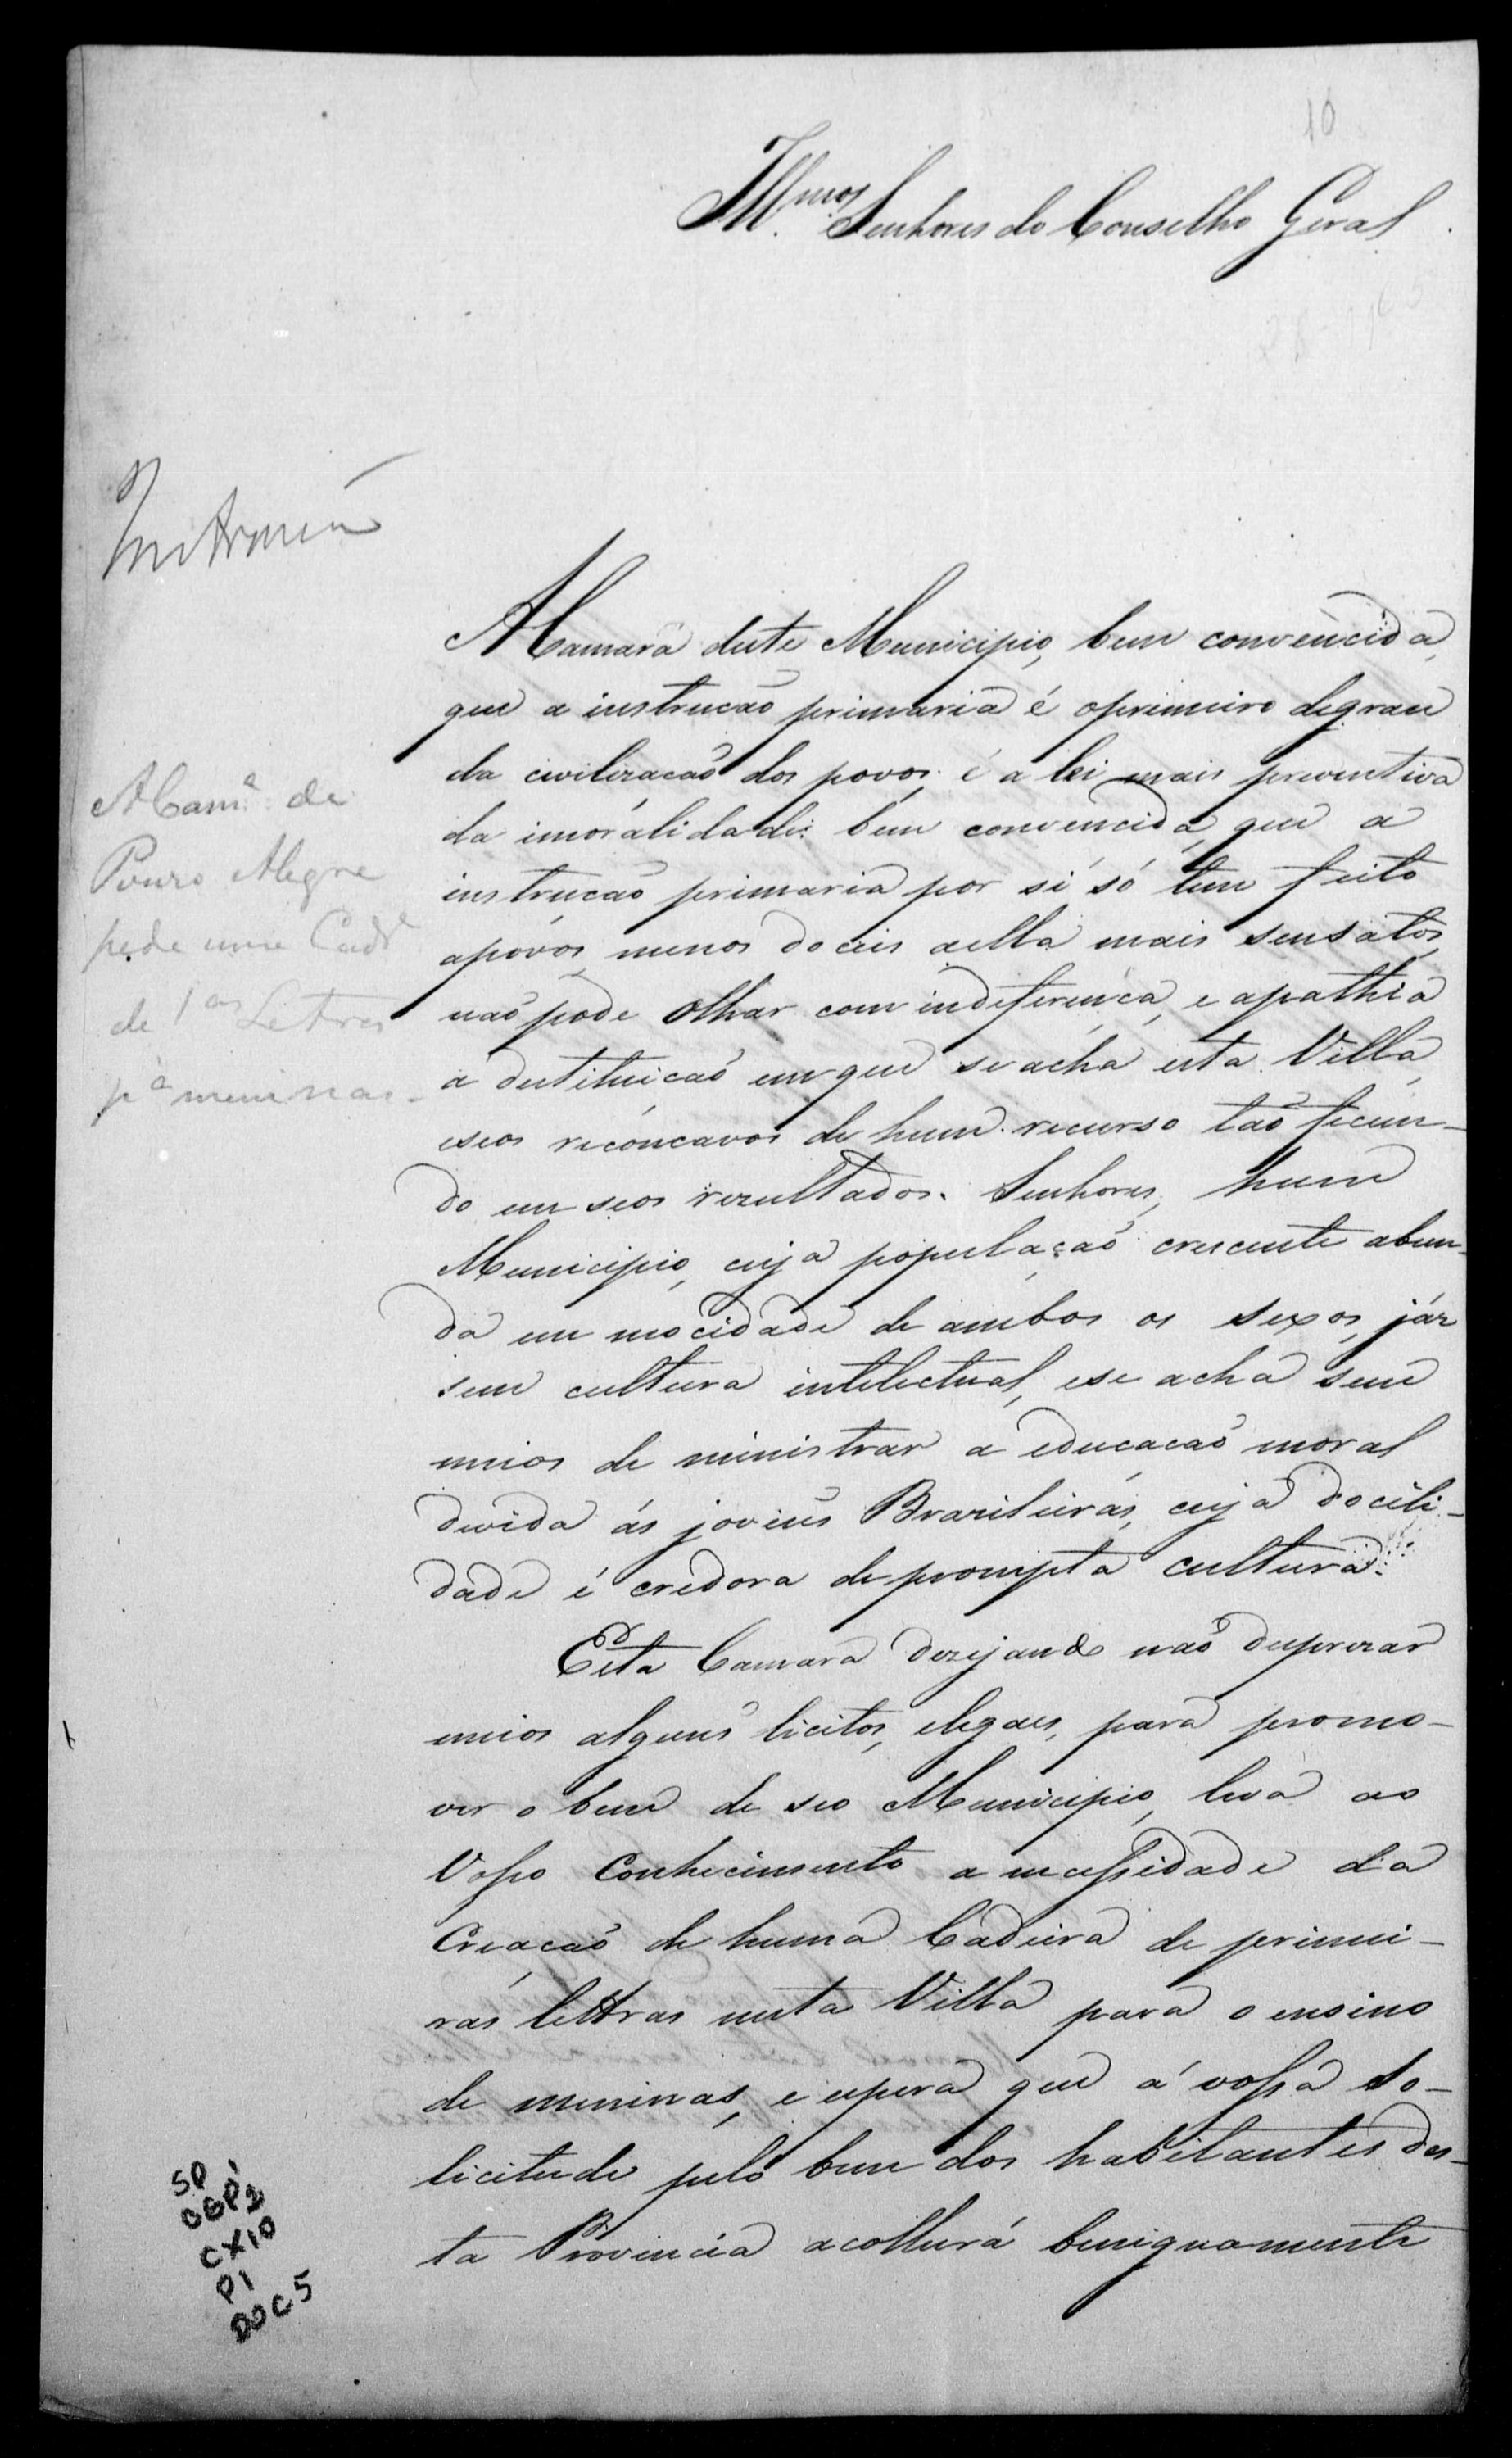 10
Ill.mos Senhores do Conselho Geral
Instrucão
A Camara deste Municipio, bem convencida,
que a instrucão primaria é oprimeiro degrau
da civilizacaõ dos povos, é a lei mais preventiva
da imoralidade: bem convencida, que a
instrucaõ primaria por si só tem feito
apóvos menos doceis aella mais sensatos,
naõ pode olhar com indeferença, e apathia
a destituiçaõ emque seacha esta Villa,
eseos reconcavos de hum recurso taõ fecun-
do em seos rezultados. Senhores, hum
Municipio, cuja populaçaõ crescente abun-
da em mocidade de ambos os sexos, jáz
sem cultura intelectual, ese acha sem
meios de ministrar a educaçaõ moral
devida ás jovens Brazileiras, cuja docili-
dade é credora deprompta cultura.
Esta Camara dezejando naõ desprezar
meios alguns licitos, elegaes, para promo-
ver o bem de seo Municipio, leva ao
Vosso Conhecimento a necessidade da
Creaçaõ de huma Cadeira de primei-
ras lettras nesta Villa para o ensino
de meninas, e espera que a vossa so-
licitude pelo bem dos habitantes des-
ta Provincia acolherá benignamente
A Cam.ª de
Pouzo Alegre
pede uma Cadr.ª
de 1as Letras
pª meninas.
SP
CGP1
CX10
P1
DOC5